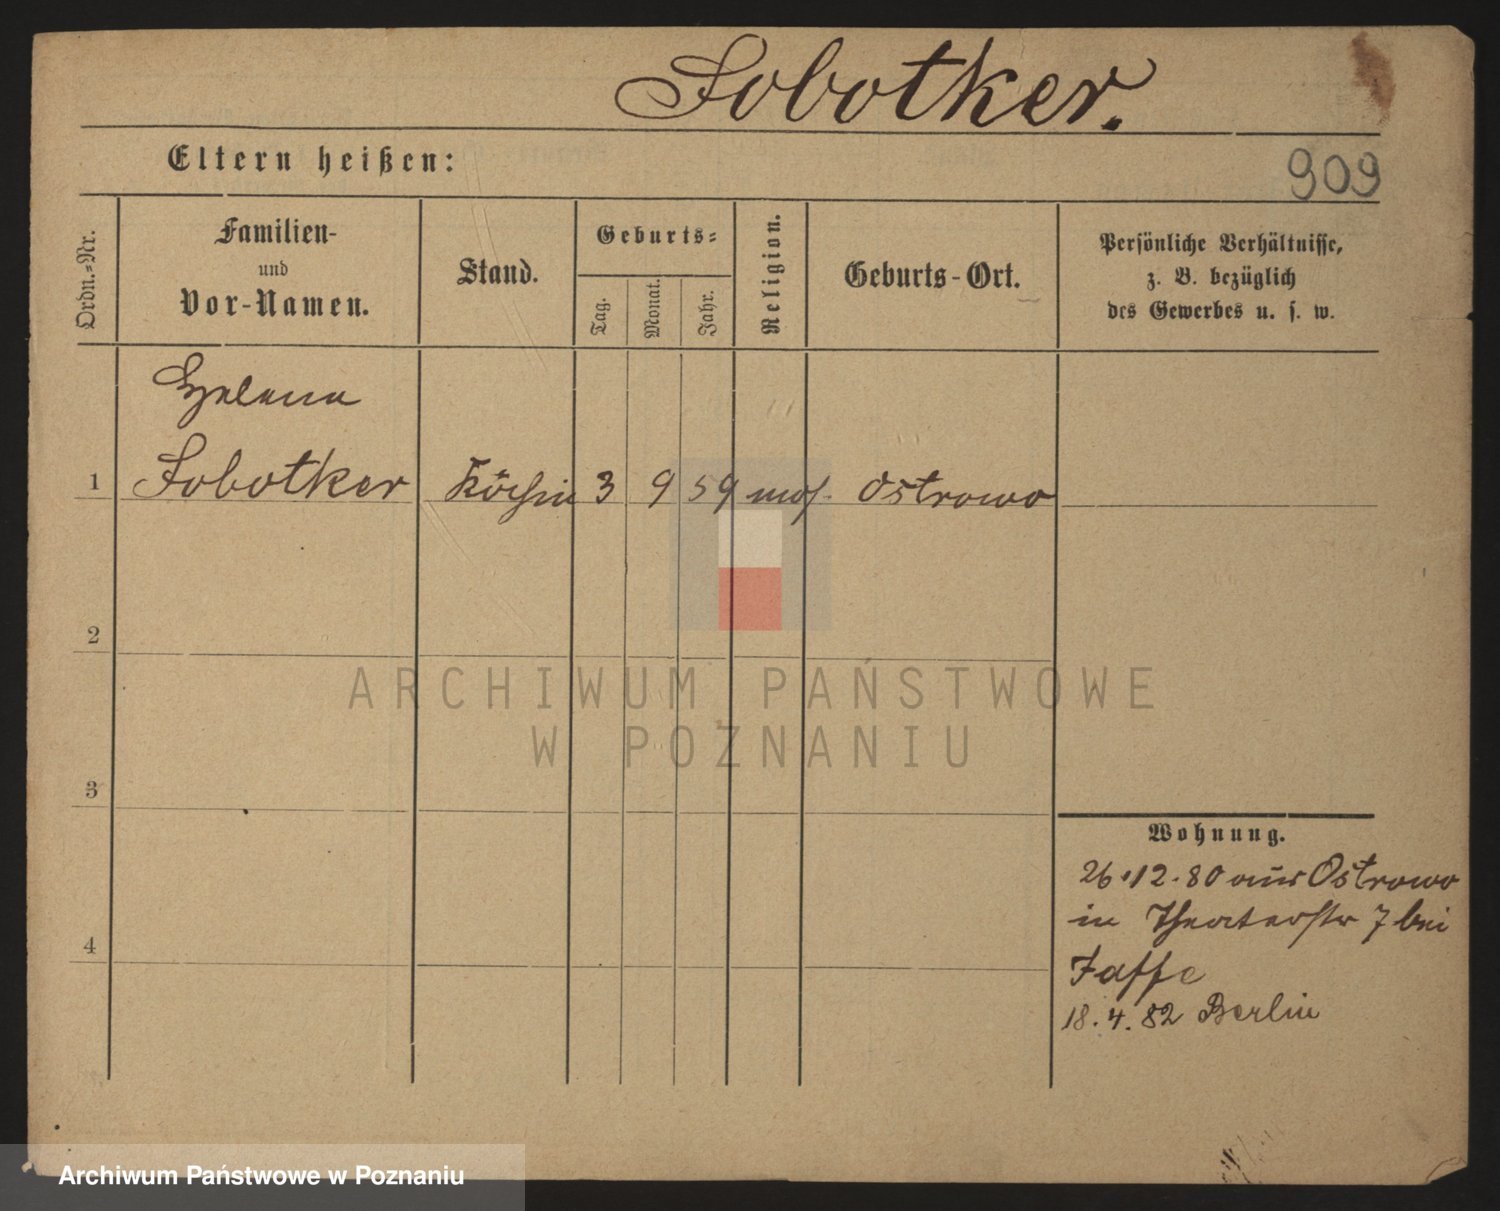 Sobotker.
Eltern heißen:
909
Ordn.-Nr.
Familien-
und
Vor-Namen.
Stand.
Geburts-
Tag.
Monat.
Jahr.
Religion.
Geburts-Ort.
Persönliche Verhältnisse,
z. B. bezüglich
des Gewerbes u. s. w.
Helene
1 Sobotker Köchin 3 9 59 mos. Ostrowo
2
3
4
Wohnung.
26.12.80 aus Ostrowo
in Theaterstr 7 bei
Jaffe
18.4.82 Berlin
ARCHIWUM PAŃSTWOWE
W POZNANIU
Archiwum Państwowe w Poznaniu